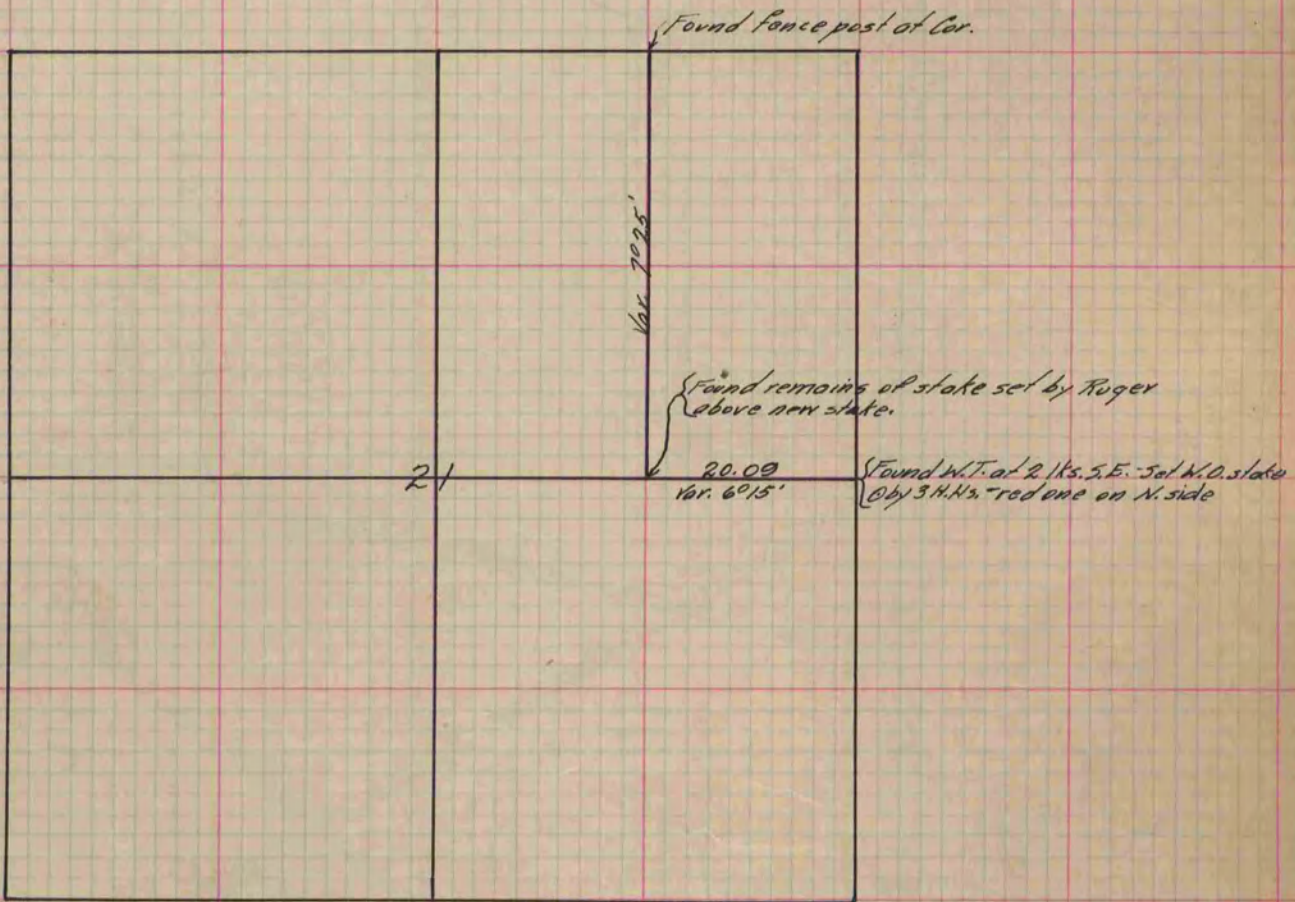 Found fence post at Cor.
Var. 7°25'
Found remains of stake set by Ruger
above new stake.
21
20.09
Var. 6°15'
Found W.T. at 2 lks. S.E. - Set W.O. stake
by 3 H.Hs. - red one on N. side